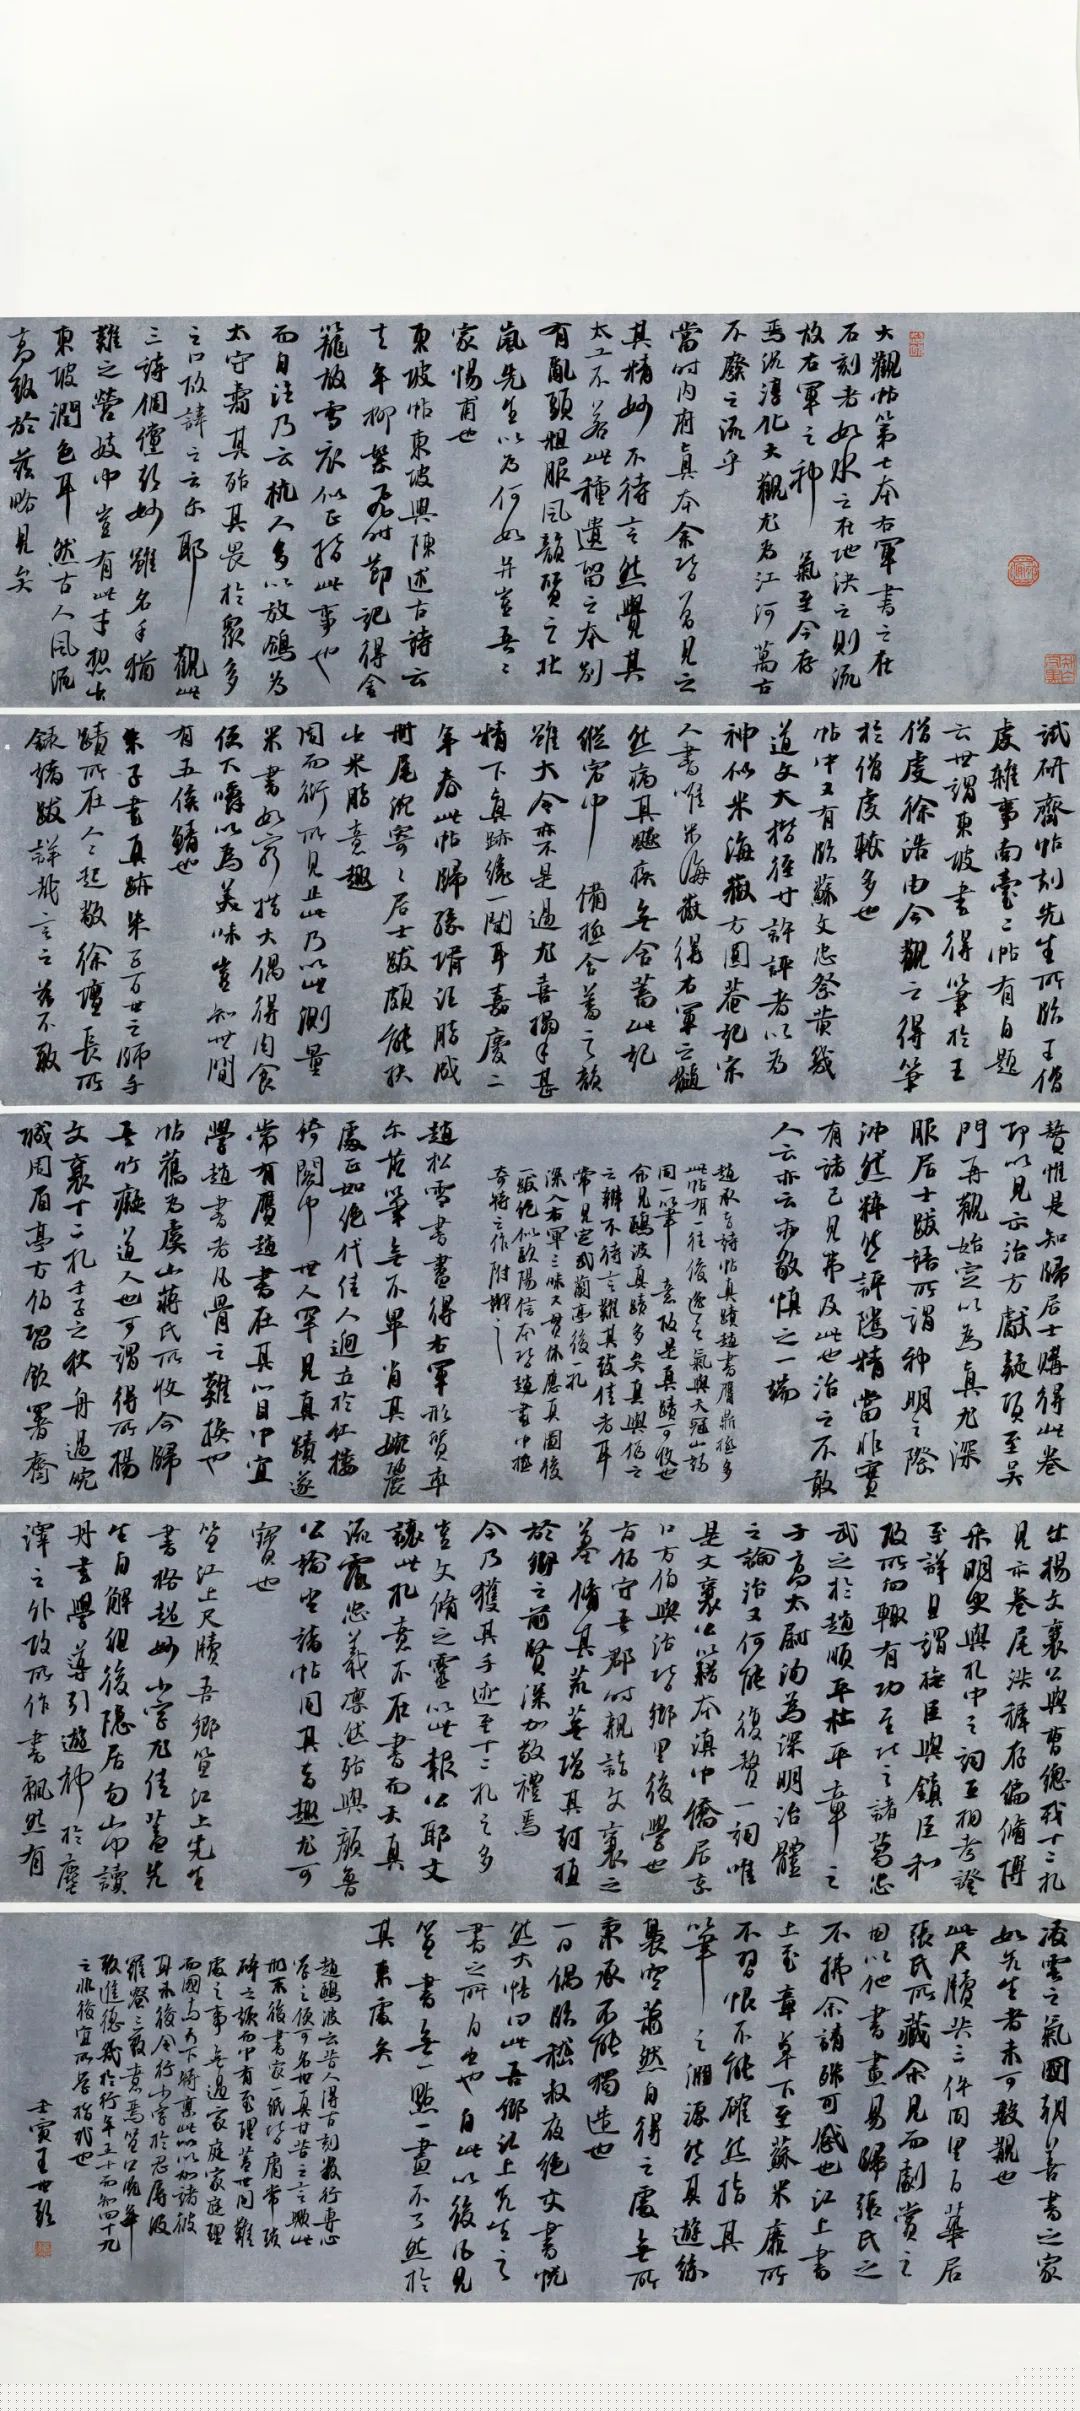 大觀帖第七本右軍書之在
石刻者如水之在地決之則流
放右軍之神氣至今存
焉況淳化大觀尤為江河萬古
不廢之流乎
當時內府真本余皆曾見之
其精妙不待言然覺其
太工不若此種遺留之本別
有亂頭粗服風韻質之北
嵐先生以為何如並豈吾之
家惕甫也
東坡帖東坡與陳述古詩云
去年柳絮飛時節記得金
籠放雪衣似正指此事也
而自注乃云杭人多以放鴿為
太守壽其殆其畏於眾多
之口故諱之云爾耶觀此
三詩倜儻彭妙雖名手猶
難之營妓中豈有此才想出
東坡潤色耳然古人風流
高致於茲略見矣
試研齋帖刻先生所臨王僧
虔雜事南臺二帖有自題
云世謂東坡書得筆於王
僧虔徐浩由今觀之得筆
於僧虔較多也
帖中又有臨蘇文忠祭黃幾
道文大楷徑寸許評者以為
神似米海嶽方圓菴記宋
人書唯米海嶽得右軍之髓
然病其趣疾無含蓄此記
縱宕中備極含蓄之韻
雖大令亦不是過尤喜搨手甚
精下真跡纔一間耳嘉慶二
年春此帖歸孫壻汪勝成
冊尾沈寄之居士跋頗能抉
出米脂意趣
周而衍所見止此乃以此測量
米書如窮措大偶得肉食
便大嚼以為美味豈知世間
有五侯鯖也
朱子書真跡朱子百世之師手
蹟所在人人起敬徐壇長所
錄諸跋詳哉言之茲不敢
贅惟是知歸居士購得此卷
即以見示治方獻疑頃至吳
門再觀始定以為真尤深
服居士跋語所謂神明之際
沛然粹然評隲精當非實
有諸己見弗及此也治之不敢
人云亦云亦敬慎之一端
趙承旨詩帖真蹟趙書贋鼎極多
此帖有一往後逸之氣與天冠山詩
同一筆意故是真蹟可收也
余見鷗波真蹟多矣真與偽之
之辨不待言難其致佳者耳
常見定武蘭亭後一札
深入右軍三昧又貫休應真圖後
一跋絕似歐陽信本皆趙書中極
奇特之作附辨之
趙松雪書畫得右軍形質率
爾落筆無不畢肖其婉麗
處正如絕代佳人迥立於紅樓
綺閣中世人罕見真蹟遂
常有贋趙書在其心目中宜
學趙書者凡骨之難換也
帖舊為虞山蔣氏所收今歸
吾竹癡道人也可謂得所楊
文襄十二札壬子之秋舟過皖
城周眉亭方伯留飲署齋
出楊文襄公與曹總戎十二札
見示卷尾洪稚存編脩博
采明史與札中之詞互相考證
至詳且謂撫臣與鎮臣和
故所向輒有功至比之諸葛忠
武之於趙順平杜平章之
子高太尉洵為深明治體
之論治又何能復贅一詞唯
是文襄公以籍本滇中僑居京
口方伯與治皆鄉里後學也
方伯守吾郡時親詣文襄之
墓脩其荒蕪增其封植
於鄉之前賢深加敬禮焉
今乃獲其手迹至十二札之多
豈文脩之靈以此報公耶文
讓此札意不在書而天真
流露忠義凜然殆與顏魯
公論坐諸帖同其旨趣尤可
寶也
笪江上尺牘吾鄉笪江上先生
書格超妙小字尤佳蓋先
生自解組後隱居句山中讀
丹書學導引遊神於塵
滓之外故所作書飄然有
凌雲之氣國朝善書之家
如先生者未可數覯也
此尺牘共三件同里百華居
張氏所藏余見而劇賞之
因以他書畫易歸張氏之
不拂余請殊可感也江上書
上至章草下至蘇米靡所
不習恨不能確然指其
筆筆之淵源然其遊絲
裊空蕭然自得之處無所
秉承不能獨造也
一日偶臨嵇叔夜絕交書恍
然大悟曰此吾鄉江上先生之
書之所自出也自此以後凡見
笪書無一點一畫不了然於
其來處矣
趙鷗波云昔人得古刻數行專心
學之便可名世真甘苦之言與此
所不後書家一紙皆庸常瑣
碎之語而中有至理蓋世間難
處之事無過家庭家庭理
而國與天下特秉此以加諸彼
耳米後令行小字於忍辱波
羅蜜三致意焉笪公晚年
敬進德幾於行年五十而知四十九
之非後宜取學措哉也
壬寅王世彭